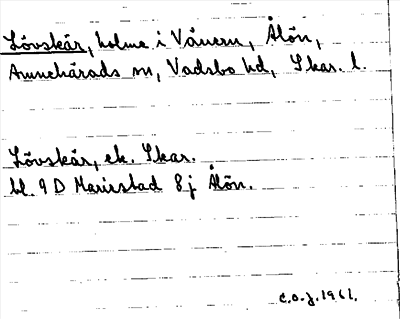 Lövskär, holme i Vänern, Ålön,
Amnehärads sn, Vadsbo hd, Skar. l.
Lövskär, ek. Skar.
bl. 9 D Mariestad 8j Ålön.
C.O.J. 1961.